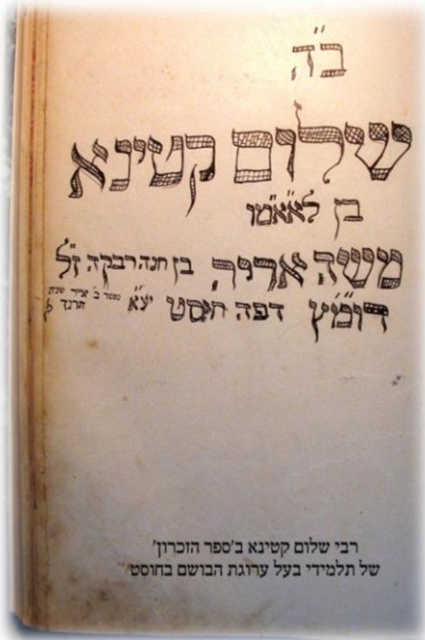 ב״ה
שלום קטינא
בן לאאמו
משה אריה בן חנה רבקה ז״ל
דומ״ץ דפה חוסט יצ״א נפטר ב׳ אייר שנת
רבי שלום קטינא ב'ספר הזכרון'
של תלמידי בעל ערוגת הבושם בחוסט